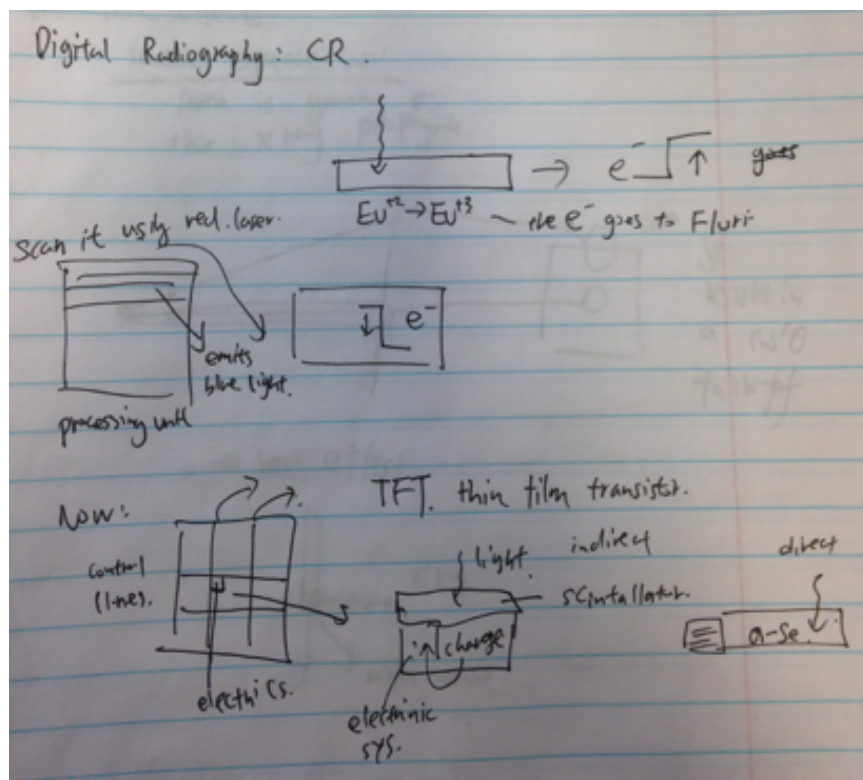 Digital Radiography: CR.
e⁻ ↑
Eu⁺² → Eu⁺³ ~ the e⁻ goes to Fluri
Scan it using red laser.
e⁻
emits
blue light.
processing unit
Now:
TFT. thin film transistor.
control
lines.
light.
indirect
scintallator.
direct
charge
a-Se.
electrnic
sys.